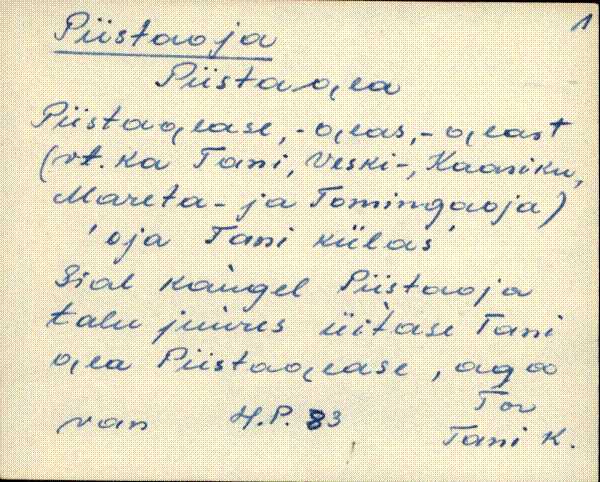 1
Piistaoja
Piistao̭ea
Piistao̭ease, -o̭eas, -o̭east
(vt. ka Tani, Veski-, Kaaniku,
Mareta- ja Tomingaoja)
'oja Tani külas'
Sial kaugel Piistaoja
talu juures üitase Tani
o̭ea Piistao̭ease, aga
Tor
van H.P. 83
Tani K.